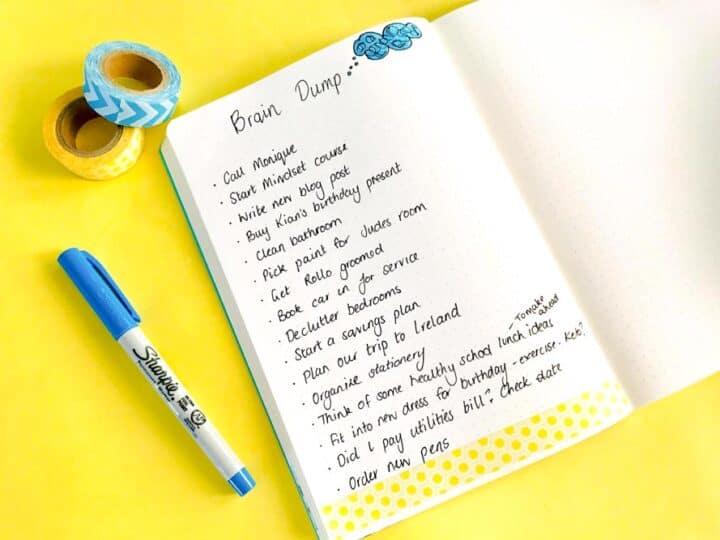 Brain Dump
• Call Monique
• Start Mindset course
• Write new blog post
• Buy Kian's birthday present
• Clean bathroom
• Pick paint for Judes room
• Get Rollo groomed
• Book car in for service
• Declutter bedrooms
• Start a savings plan
• Plan our trip to Ireland
• Organise stationery
• Think of some healthy school lunch ideas - To make ahead
• Fit into new dress for birthday - exercise. Keto?
• Did I pay utilities bill? Check date
• Order new pens
Sharpie